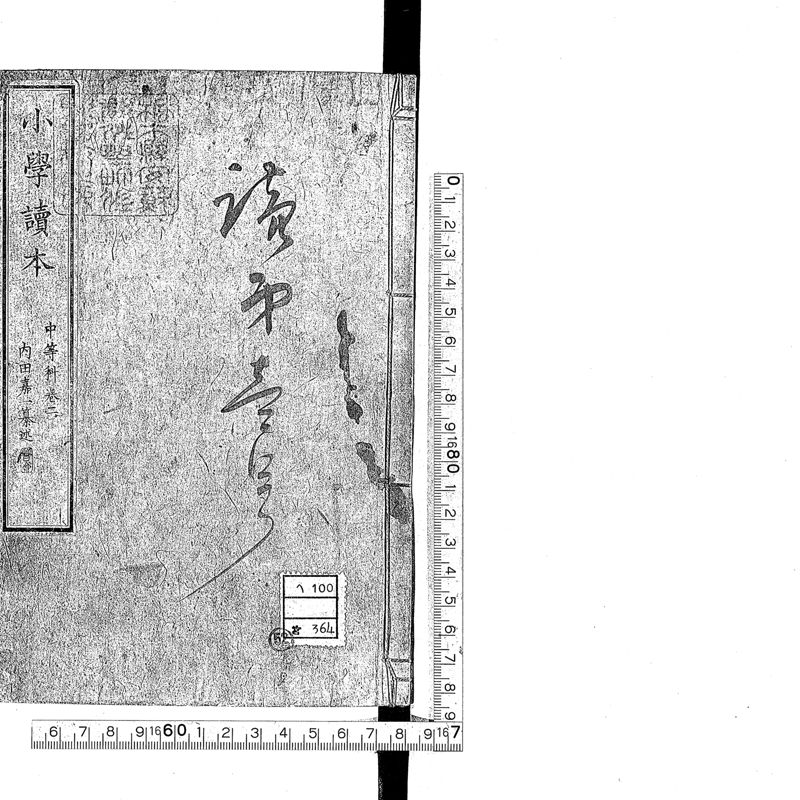 小學讀本
中等科卷二
内田嘉一纂述
讀第壹号
ヘ 100
364
52
0 1 2 3 4 5 6 7 8 9 16 80 1 2 3 4 5 6 7 8 9
6 7 8 9 16 60 1 2 3 4 5 6 7 8 9 16 7